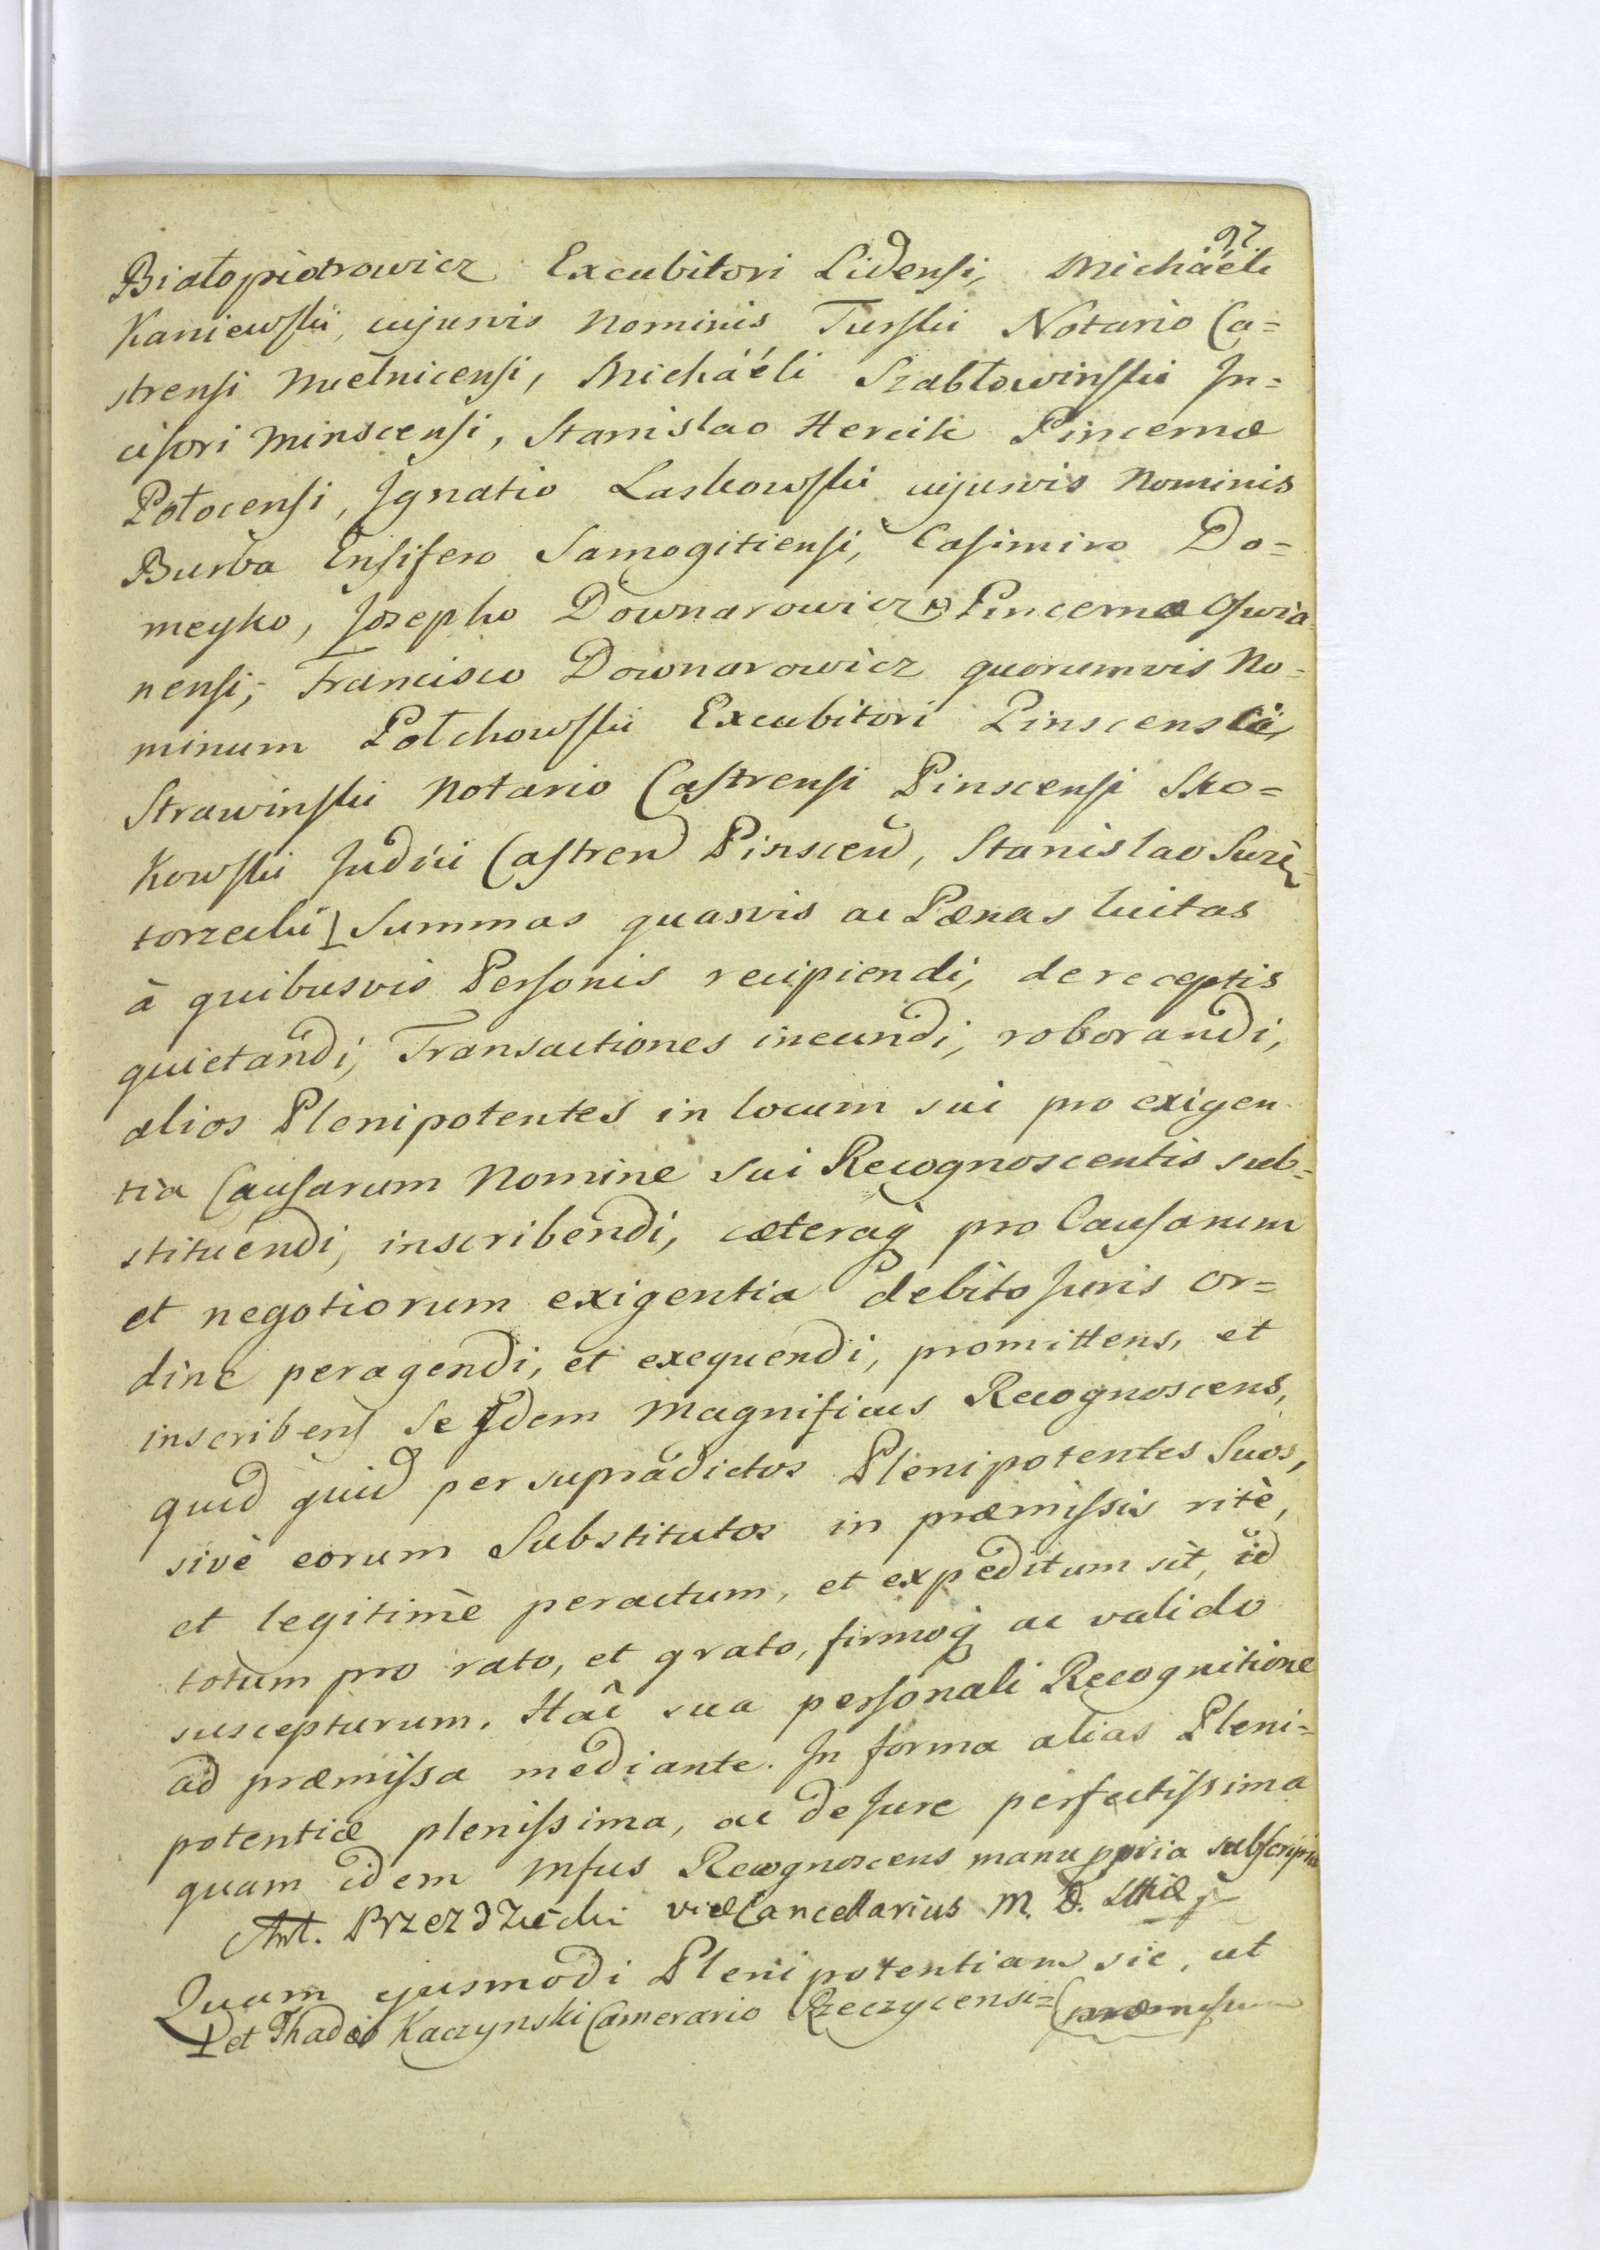 97
Białopiotrowicz Excubitori Lidensi, Michaéli
Kaniewski, cujusvis Nominis Turski Notario Ca=
strensi Mielnicensi, Michaéli Szabłowinski In=
cisori Minscensi, Stanislao Hercik Pincernæ
Połocensi, Ignatio Laskowski cujusvis Nominis
Burba Ensifero Samogitiensi, Casimiro Do=
meyko, Josepho Downarowicz Pincernæ Oswia
nensi, Francisco Downarowicz quorumvis No=
minum Połchowski Excubitori Pinscensi,
Strawinski Notario Castrensi Pinscensi Sko=
kowski Judici Castren Pinscen, Stanislao Surzÿn
torzecki Summas quasvis ac Pœnas luitas
à quibusvis Personis recipiendi, de receptis
quietandi, Transactiones ineundi, roborandi,
alios Plenipotentes in locum sui pro exigen
tia Causarum Nomine sui Recognoscentis sub=
stituendi, inscribendi, cæteraq̃ pro Causarum
et negotiorum exigentia debito Juris or=
dine peragendi, et exequendi, promittens, et
inscribens se Idem Magnificus Recognoscens,
quid quid per supradictos Plenipotentes Suos,
sivè eorum Substitutos in præmissis ritè,
et legitimè peractum, et expeditum sit, id
totum pro rato, et grato, firmoq̃ ac valido
suscepturum. Hâc sua personali Recognitione
ad præmissa mediante. In forma alias Pleni=
potentiæ plenissima, ac de Jure perfectissima
quam idem Mfcus Recognoscens manu ppria subscripsit
Ant. Przezdziecki viceCancellarius M. D. Lttiæ
Quam ejusmodi Plenipotentiam sic, ut
et Thadæo Kaczynski Camerario Rzeczycensi= præmissum